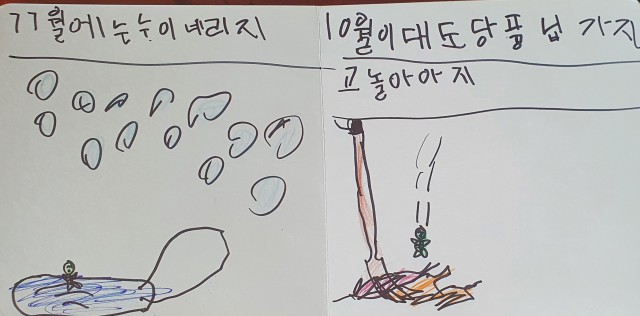 11월에는 누이 네리지
10월이 대도 당풍닙 가지
고 놀아아지